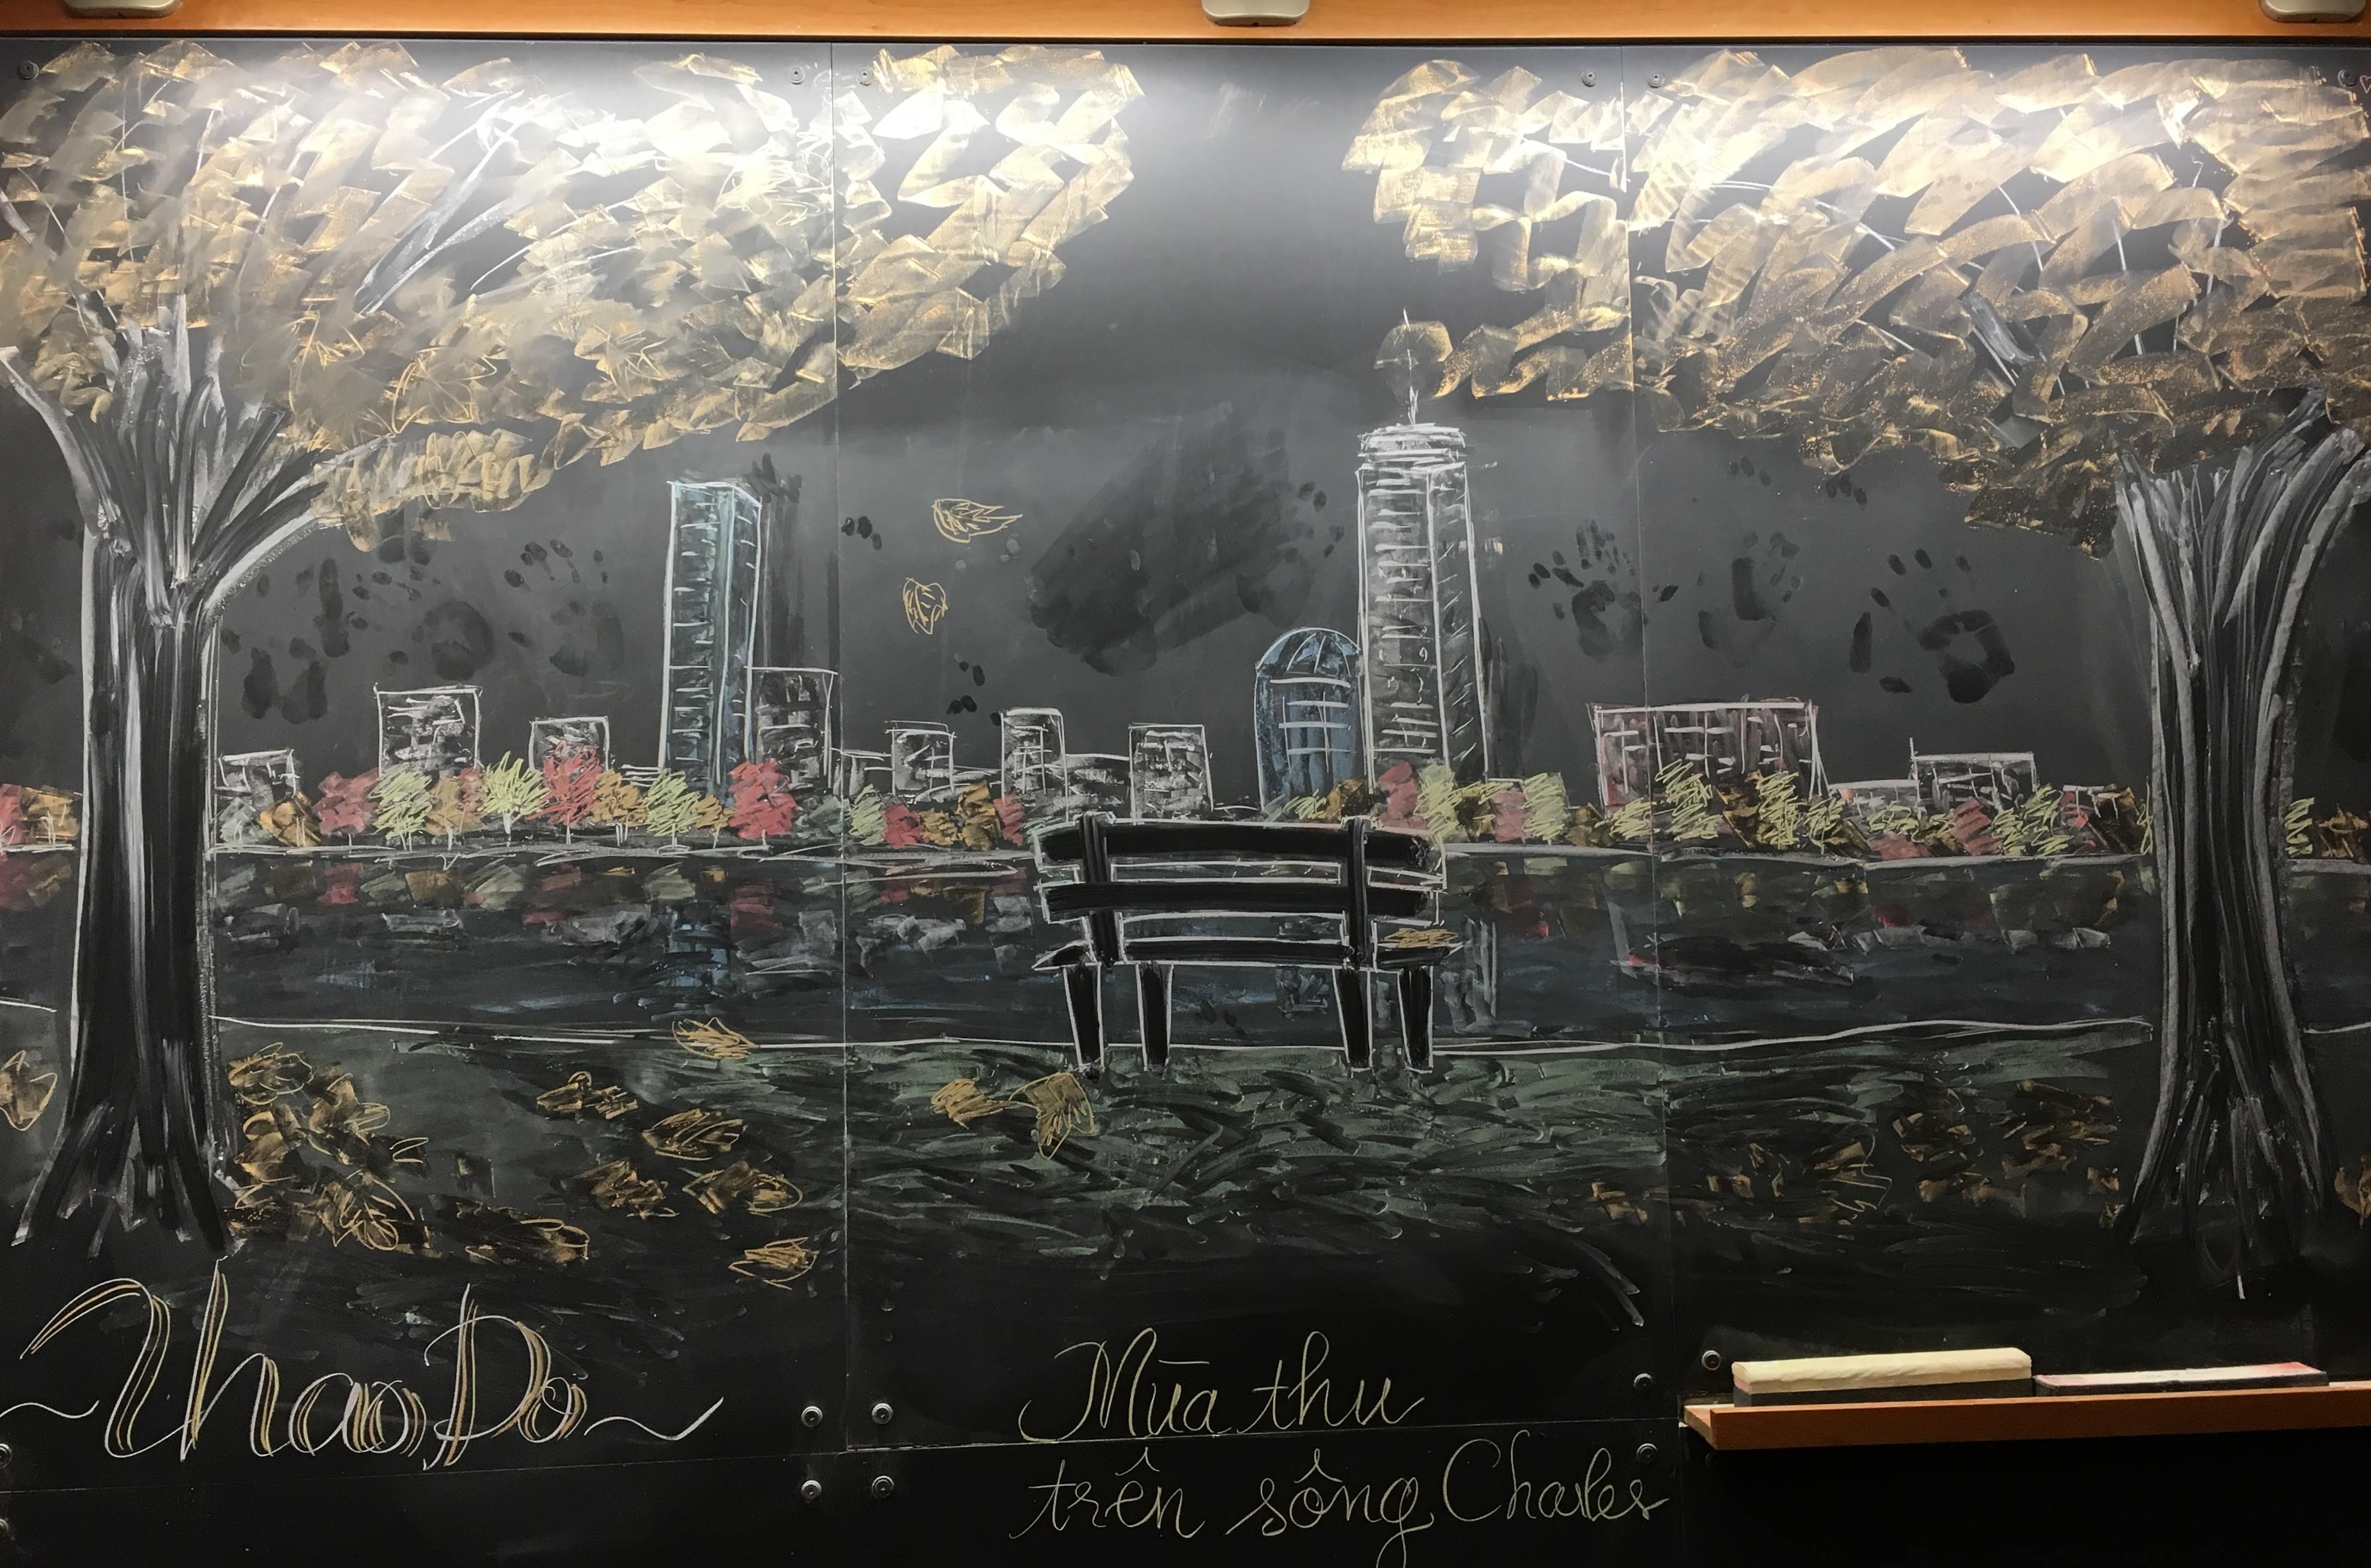 Nhao Do
Mùa thu
trên sông Charles